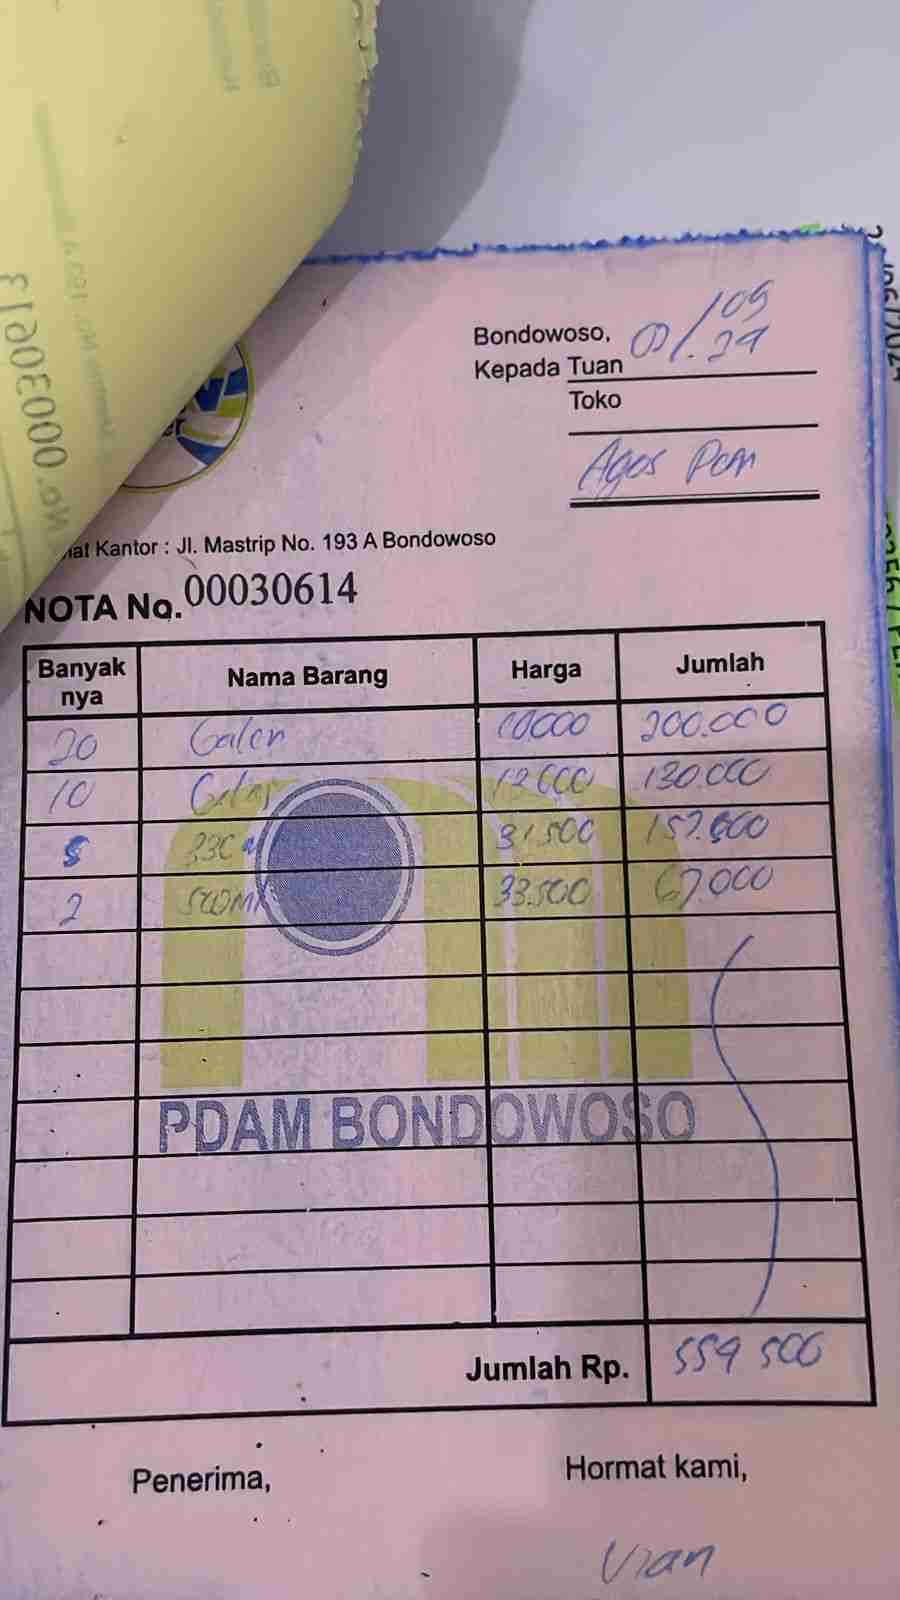 No. 00030613
/09
Bondowoso, 09/. 24
Kepada Tuan
Toko
Agos Pam
at Kantor : Jl. Mastrip No. 193 A Bondowoso
NOTA No. 00030614
Banyak nya Nama Barang Harga Jumlah
20 Galon 10.000 200.000
10 Galon 13.000 130.000
5 330 31.500 157.500
2 500 Ml 33.500 67.000
PDAM BONDOWOSO
Jumlah Rp. 554 500
Penerima, Hormat kami,
Vian